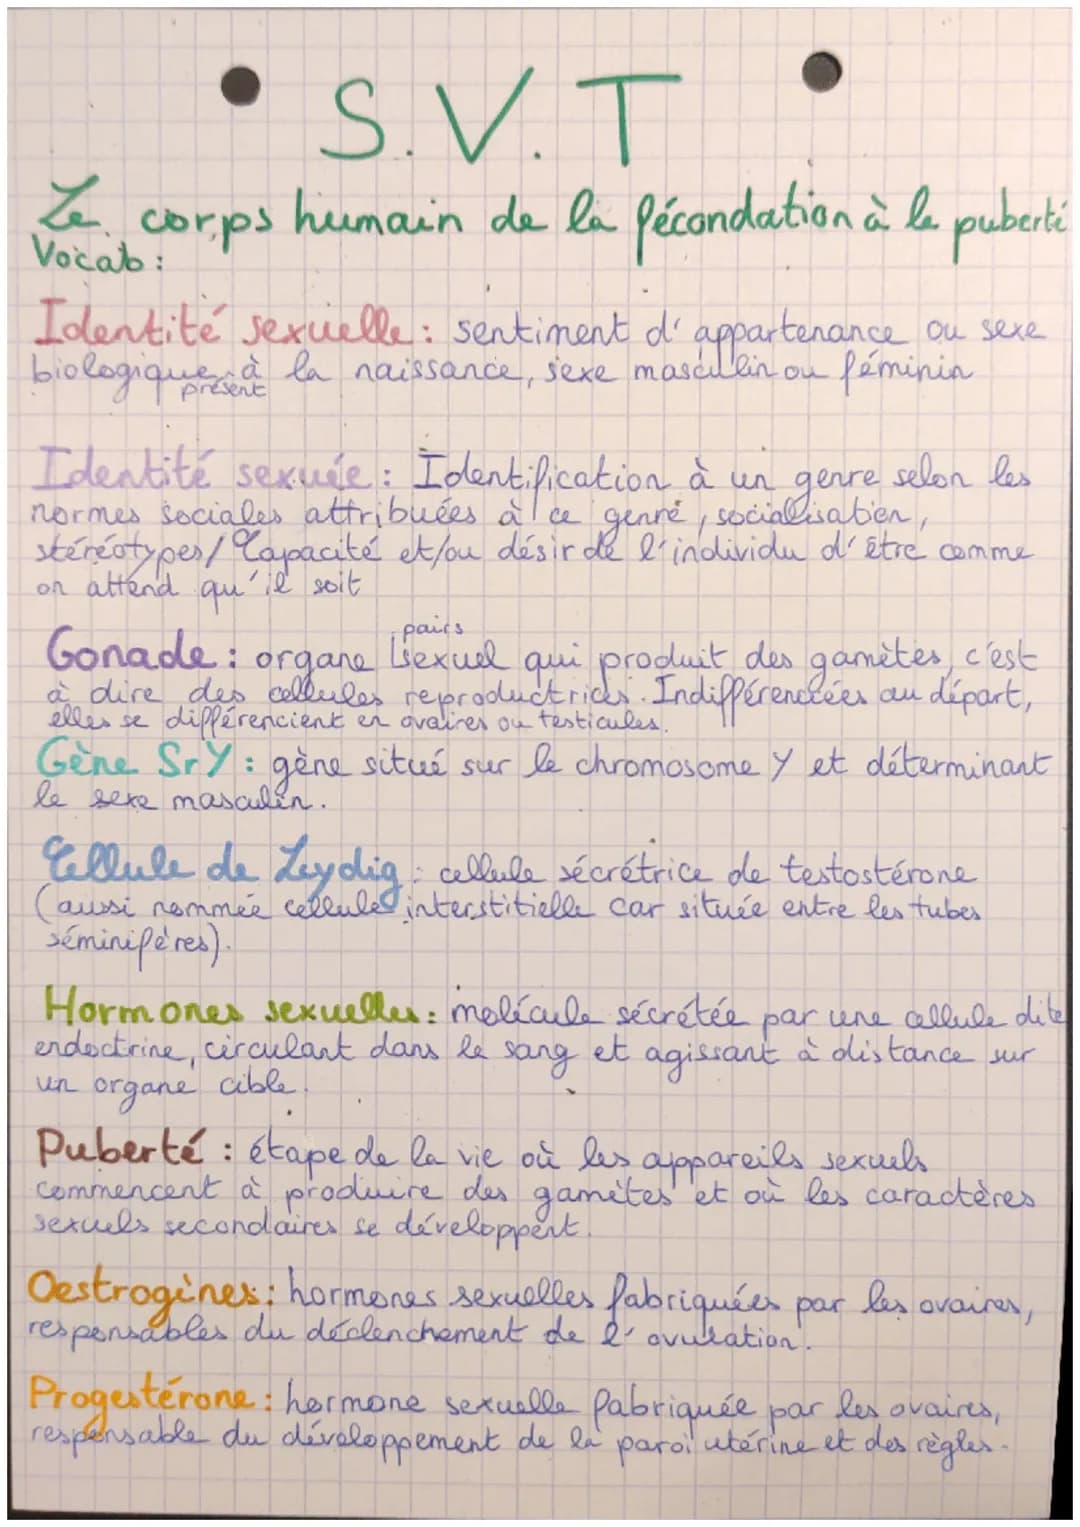 S.V.T
Le corps humain de la fécondation à la puberté
Vocab :
Identité sexuelle : sentiment d'appartenance ou sexe
biologique présent à la naissance, sexe masculin ou féminin
Identité sexuée : Identification à un genre selon les
normes sociales attribuées à ce genre, socialisation,
stéréotypes / Capacité et/ou désir de l'individu d'être comme
on attend qu'il soit
pairs
Gonade : organe sexuel qui produit des gamètes, c'est
à dire des cellules reproductrices. Indifférenciées au départ,
elles se différencient en ovaires ou testicules.
Gène SrY : gène situé sur le chromosome Y et déterminant
le sexe masculin.
Cellule de Leydig : cellule sécrétrice de testostérone
(aussi nommée cellule interstitielle car située entre les tubes
séminifères).
Hormones sexuelles : molécule sécrétée par une cellule dite
endoctrine, circulant dans le sang et agissant à distance sur
un organe cible.
Puberté : étape de la vie où les appareils sexuels
commencent à produire des gamètes et où les caractères
sexuels secondaires se développent.
Oestrogènes : hormones sexuelles fabriquées par les ovaires,
responsables du déclenchement de l'ovulation.
Progestérone : hormone sexuelle fabriquée par les ovaires,
responsable du développement de la paroi utérine et des règles.